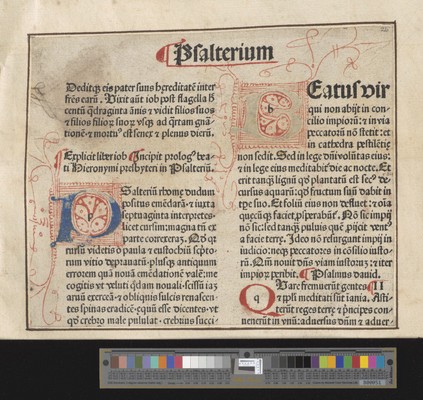 Psalterium
Deditq; eis pater suus hereditatē inter
frēs earū. Vixit aūt iob post flagella h̄
centū q̄draginta ānis ⁊ vidit filios suos
⁊ filios filioꝝ suoꝝ vsq; ad q̄rtam gnā
tionē ⁊ mortu⁹ est senex ⁊ plenus dierū.
Explicit liber iob Incipit prolog⁹ bea
ti Hieronymi presbyteri in Psalteriū.
Psalteriū rhome dudum
positus emēdarā: ⁊ iuxta
septuaginta interpretes
licet cursim: magna tn̄ ex
parte correxerā. Qd̄ qz
rursū videtis o paula ⁊ eustochiū scripto
rum vitio deprauatū: plusq; antiquum
errorem quā nouā emēdationē valē: me
cogitis vt veluti q̄dam nouali: scissū iā
aruū exerceā: ⁊ obliquis sulcis renascen
tes spinas eradicē: equū esse dicentes. vt
qd̄ crebro male pullulat. crebrius succi
Beatus vir
qui non abijt in con-
cilio impioꝝ: ⁊ in via
peccatoꝝ nō stetit: et
in cathedra pestilētie
non sedit. Sed in lege dn̄i volūtas eius:
⁊ in lege eius meditabit̄ die ac nocte. Et
erit tanq; lignū qd̄ plantatū est sec⁹ de-
cursus aquaꝝ: qd̄ fructum suū dabit in
tpe suo. Et foliū eius non defluet: ⁊ oīa
quecūqz faciet, psperabūt̄. Nō sic impij
nō sic: sed tanq; puluis quē proijcit vent⁹
a facie terre. Ideo nō resurgunt impij in
iudicio: neqz peccatores in cōsilio iusto-
rū. Qm̄ nouit dn̄s viam iustoꝝ: ⁊ iter
impioꝝ peribit. Psalmus dauid.
Quare fremuerūt gentes II
⁊ ppl̄i meditati sūt inania. Asti-
terūt reges terre ⁊ p̄ncipes con-
uenerūt in vnū: aduersus dn̄m ⁊ aduer-
b
p
q